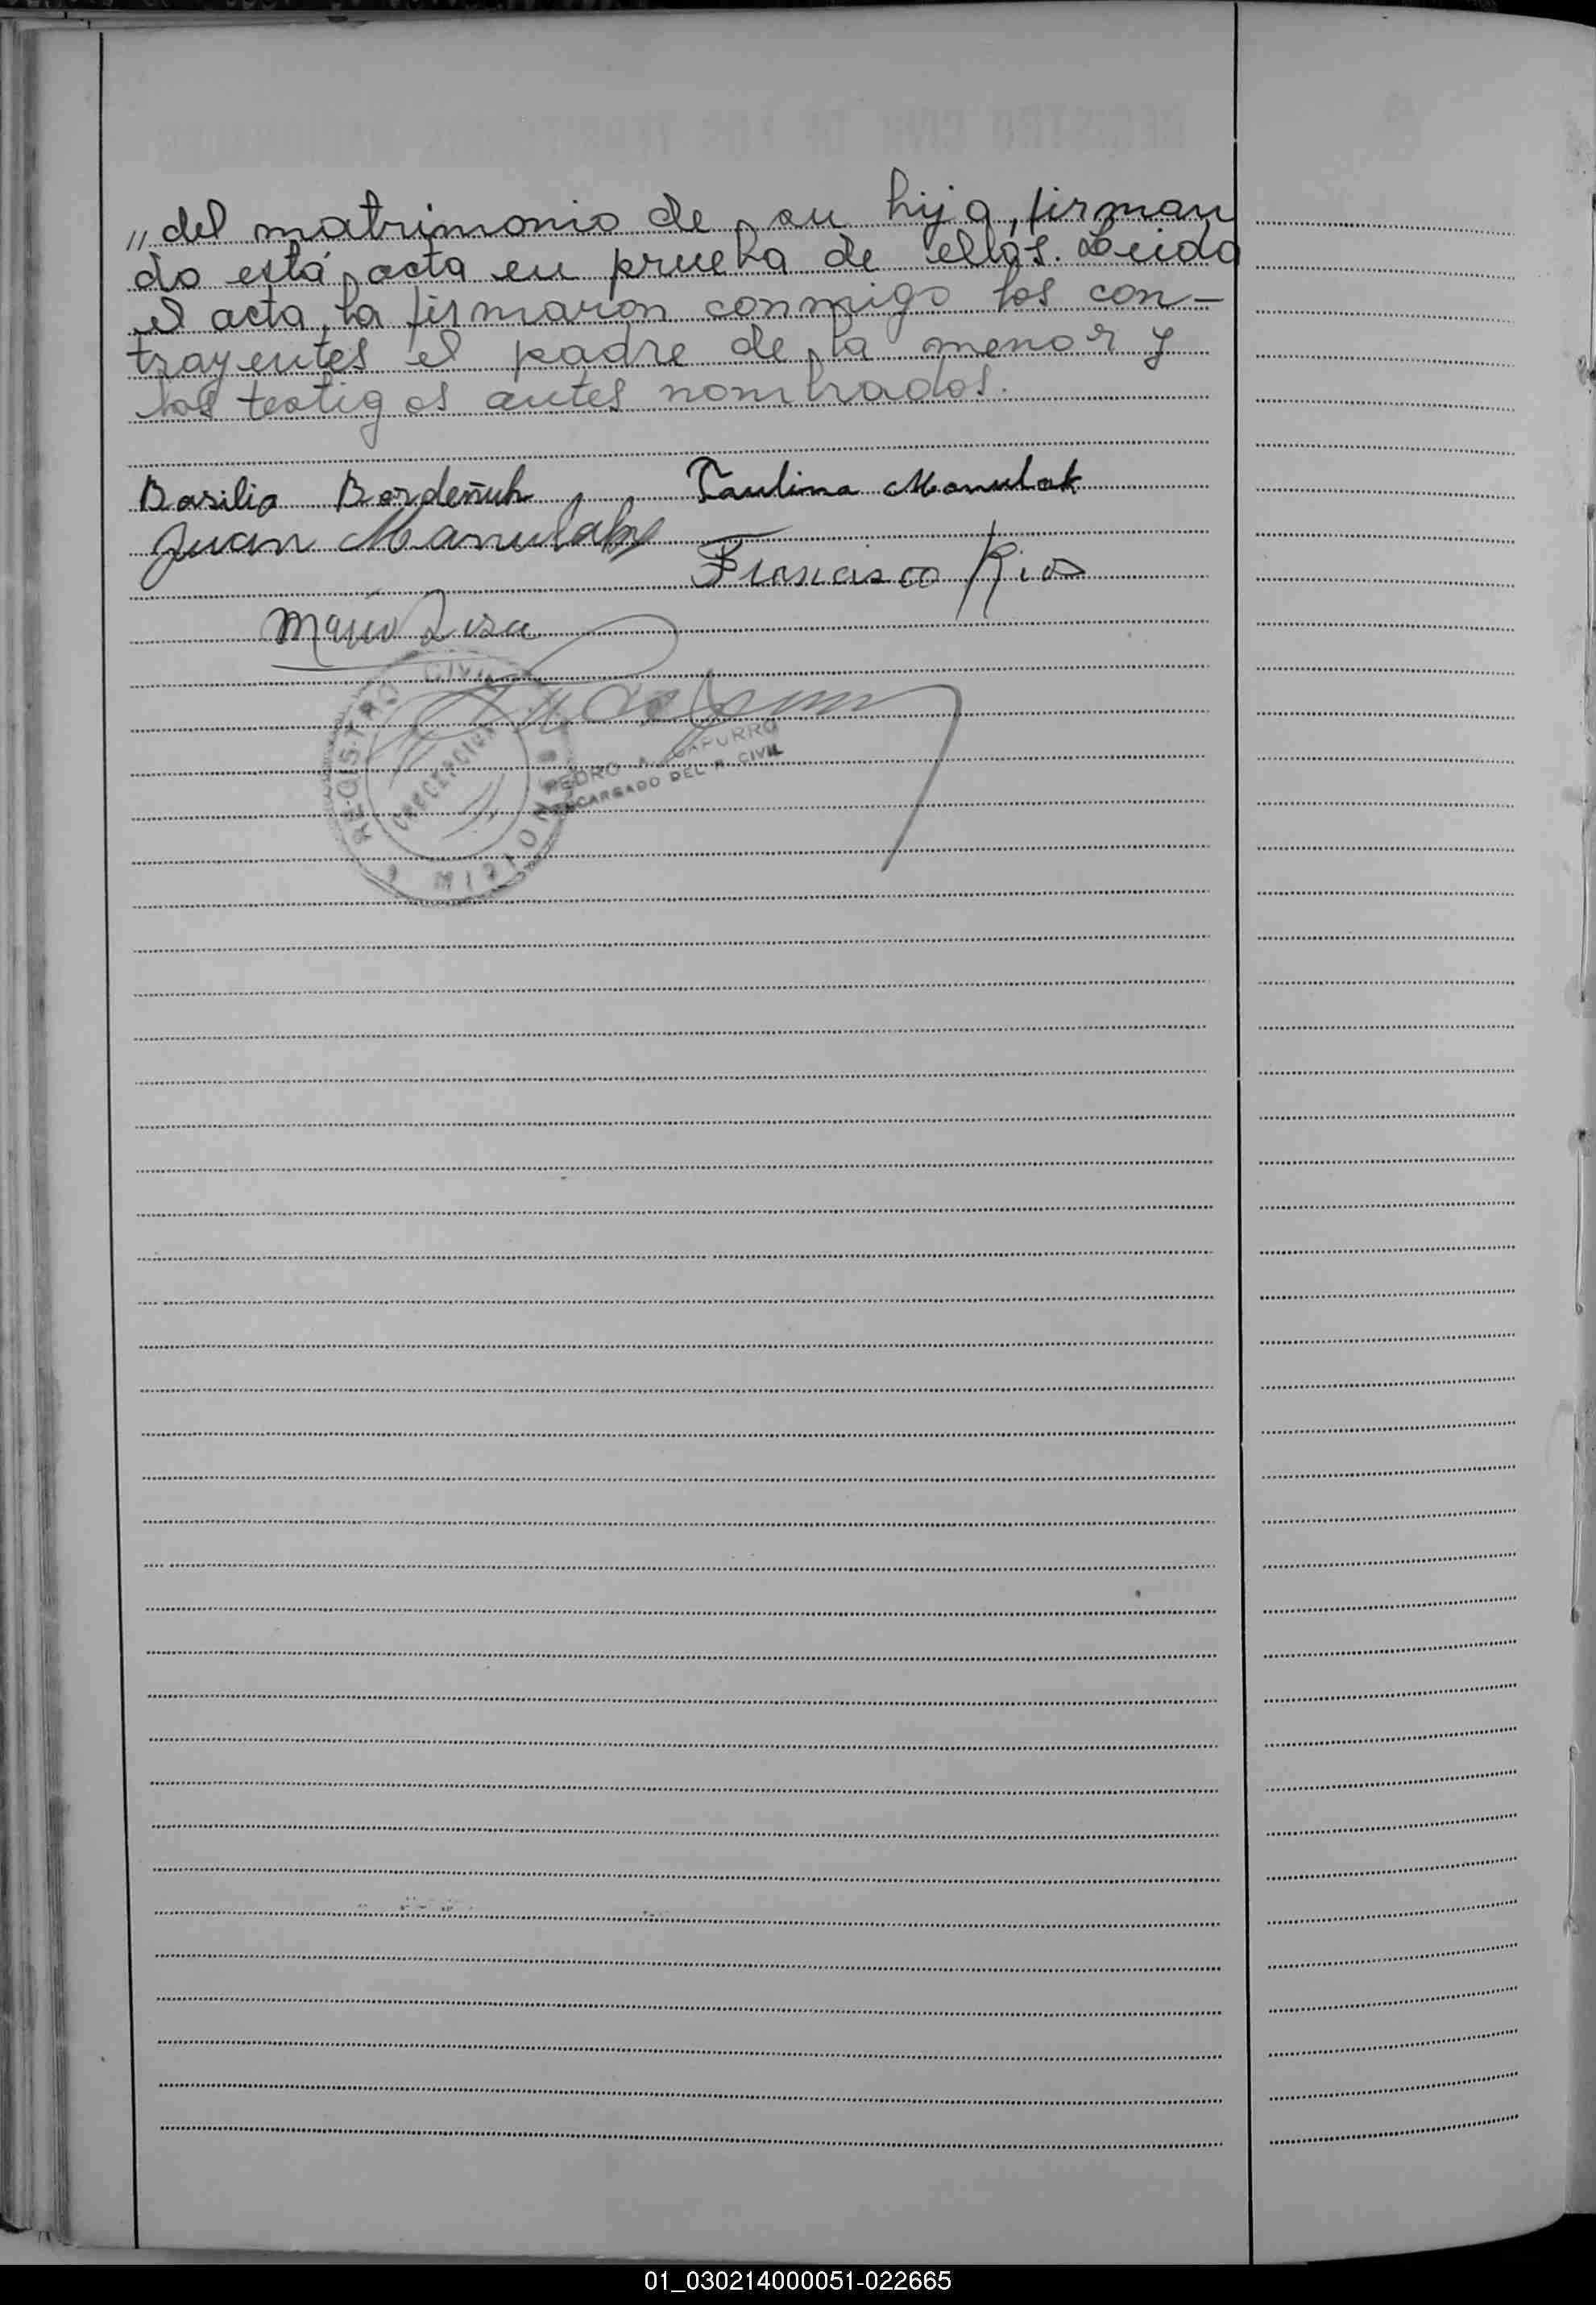 „ del matrimonio de su hija, firman
do está acta en prueba de ellos. Leida
el acta, la firmaron conmigo los con-
trayentes el padre de la menor y
los testigos antes nombrados.
Basilio Bordeñuk Paulina Manulak
Juan Manulak
Francisco Rios
Mario
REGISTRO CIVIL
CONCEPCION
MISIONES
PEDRO A. CAPURRO
ENCARGADO DEL R. CIVIL
01_030214000051-022665